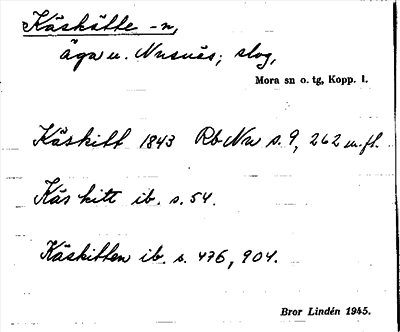 Käskätte -n,
äga u. Nusnäs; slog,
Mora sn o. tg, Kopp. l.
Käskitt 1843 Rb Nu s. 9, 262 m.fl.
Käs kitt ib. s. 54.
Käskitten ib. s. 476, 904.
Bror Lindén 1945.